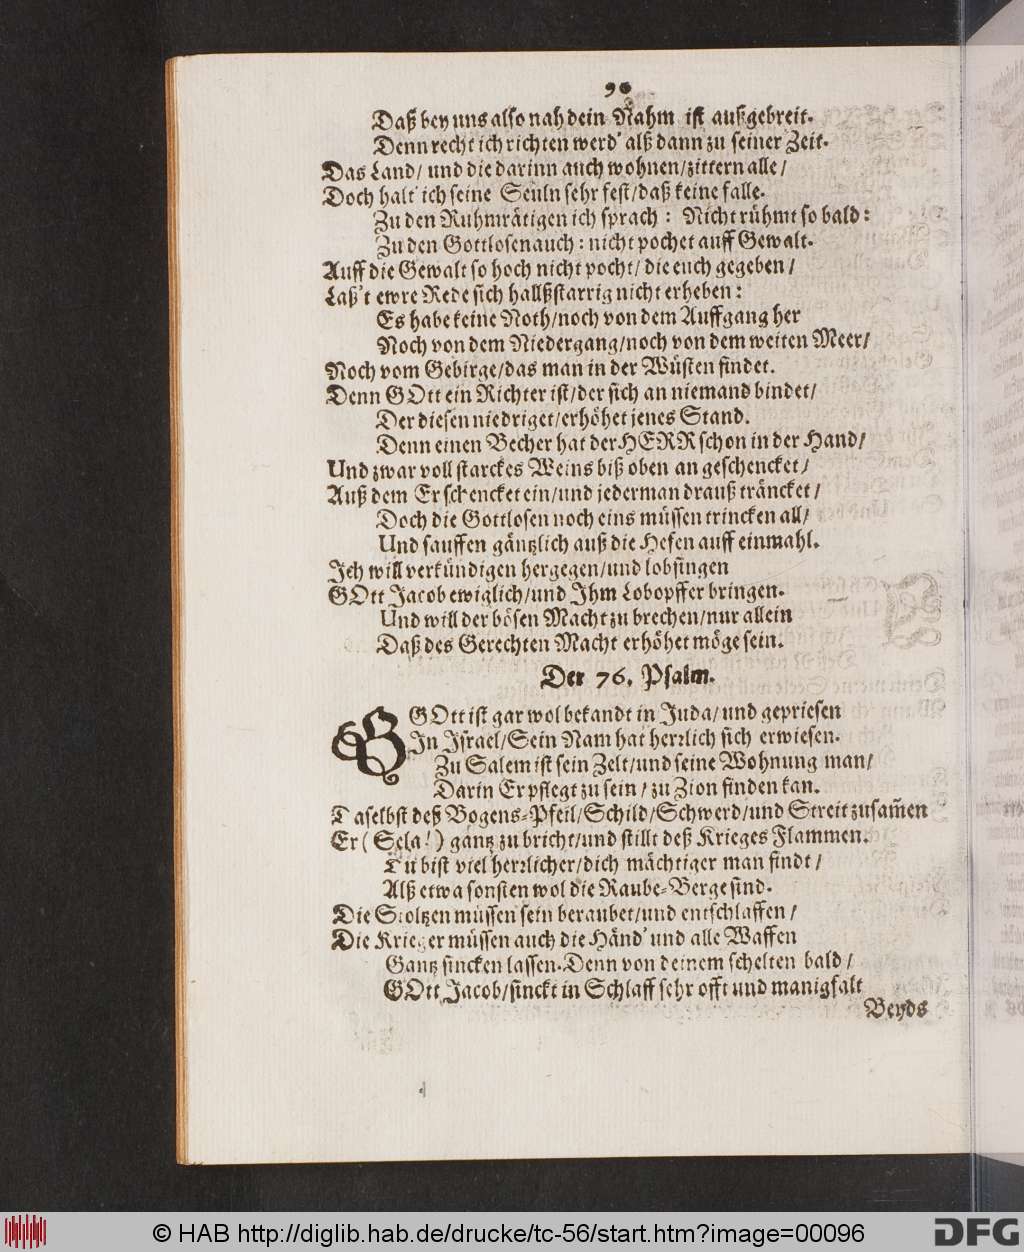 90
Daß bey uns also nah dein Nahm ist außgebreit.
Denn recht ich richten werd' alß dann zu seiner Zeit.
Das Land/ und die darinn auch wohnen/zittern alle/
Doch halt' ich seine Seuln sehr fest/daß keine falle.
Zu den Ruhmrätigen ich sprach: Nicht rühmt so bald:
Zu den Gottlosen auch: nicht pochet auff Gewalt.
Auff die Gewalt so hoch nicht pocht/ die euch gegeben/
Laß't ewre Rede sich hallßstarrig nicht erheben:
Es habe keine Noth/noch von dem Auffgang her
Noch von dem Niedergang/noch von dem weiten Meer/
Noch vom Gebirge/das man in der Wüsten findet.
Denn GOtt ein Richter ist/der sich an niemand bindet/
Der diesen niedriget/erhöhet jenes Stand.
Denn einen Becher hat der HERR schon in der Hand/
Und zwar voll starckes Weins biß oben an geschencket/
Auß dem Er schencket ein/und jederman drauß träncket/
Doch die Gottlosen noch eins müssen trincken all/
Und sauffen gäntzlich auß die Hefen auff einmahl.
Ich will verkündigen hergegen/und lobsingen
GOtt Jacob ewiglich/und Ihm Lobopffer bringen.
Und will der bösen Macht zu brechen/nur allein
Daß des Gerechten Macht erhöhet möge sein.
Der 76. Psalm.
GOtt ist gar wol bekandt in Juda/und gepriesen
In Israel/Sein Nam hat herzlich sich erwiesen.
Zu Salem ist sein Zelt/und seine Wohnung man/
Darin Er pflegt zu sein/ zu Zion finden kan.
Daselbst deß Bogens-Pfeil/Schild/Schwerd/und Streit zusam̃en
Er (Sela!) gäntz zu bricht/und stillt deß Krieges Flammen.
Tu bist viel herzlicher/dich mächtiger man findt/
Alß etwa sonsten wol die Raube-Berge sind.
Die Stoltzen müssen sein beraubet/und entschlaffen/
Die Krieger müssen auch die Händ' und alle Waffen
Gantz sincken lassen. Denn von deinem schelten bald/
GOtt Jacob/sinckt in Schlaff sehr offt und manigfalt
Beyds
© HAB http://diglib.hab.de/drucke/tc-56/start.htm?image=00096
DFG